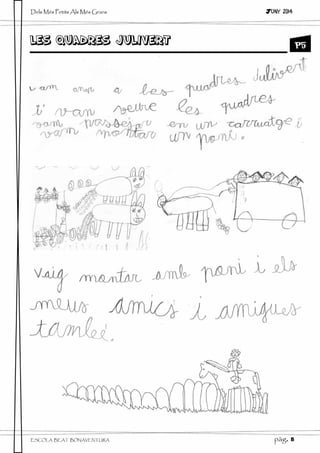 Dels Més Petits Als Més Grans
JUNY 2014
LES QUADRES JULIVERT
P5
vam anar a les quadres Julivert
i van veure les quadres
vam passejar en un carruatge i
vam montar un poni.
Vaig montar amb poni i els
meus amics i amigues
també.
ESCOLA BEAT BONAVENTURA
pàg. 8